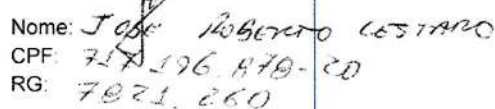 Nome: JOSE ROBERTO CESTARO
CPF: 717.196.878-20
RG: 7821.260